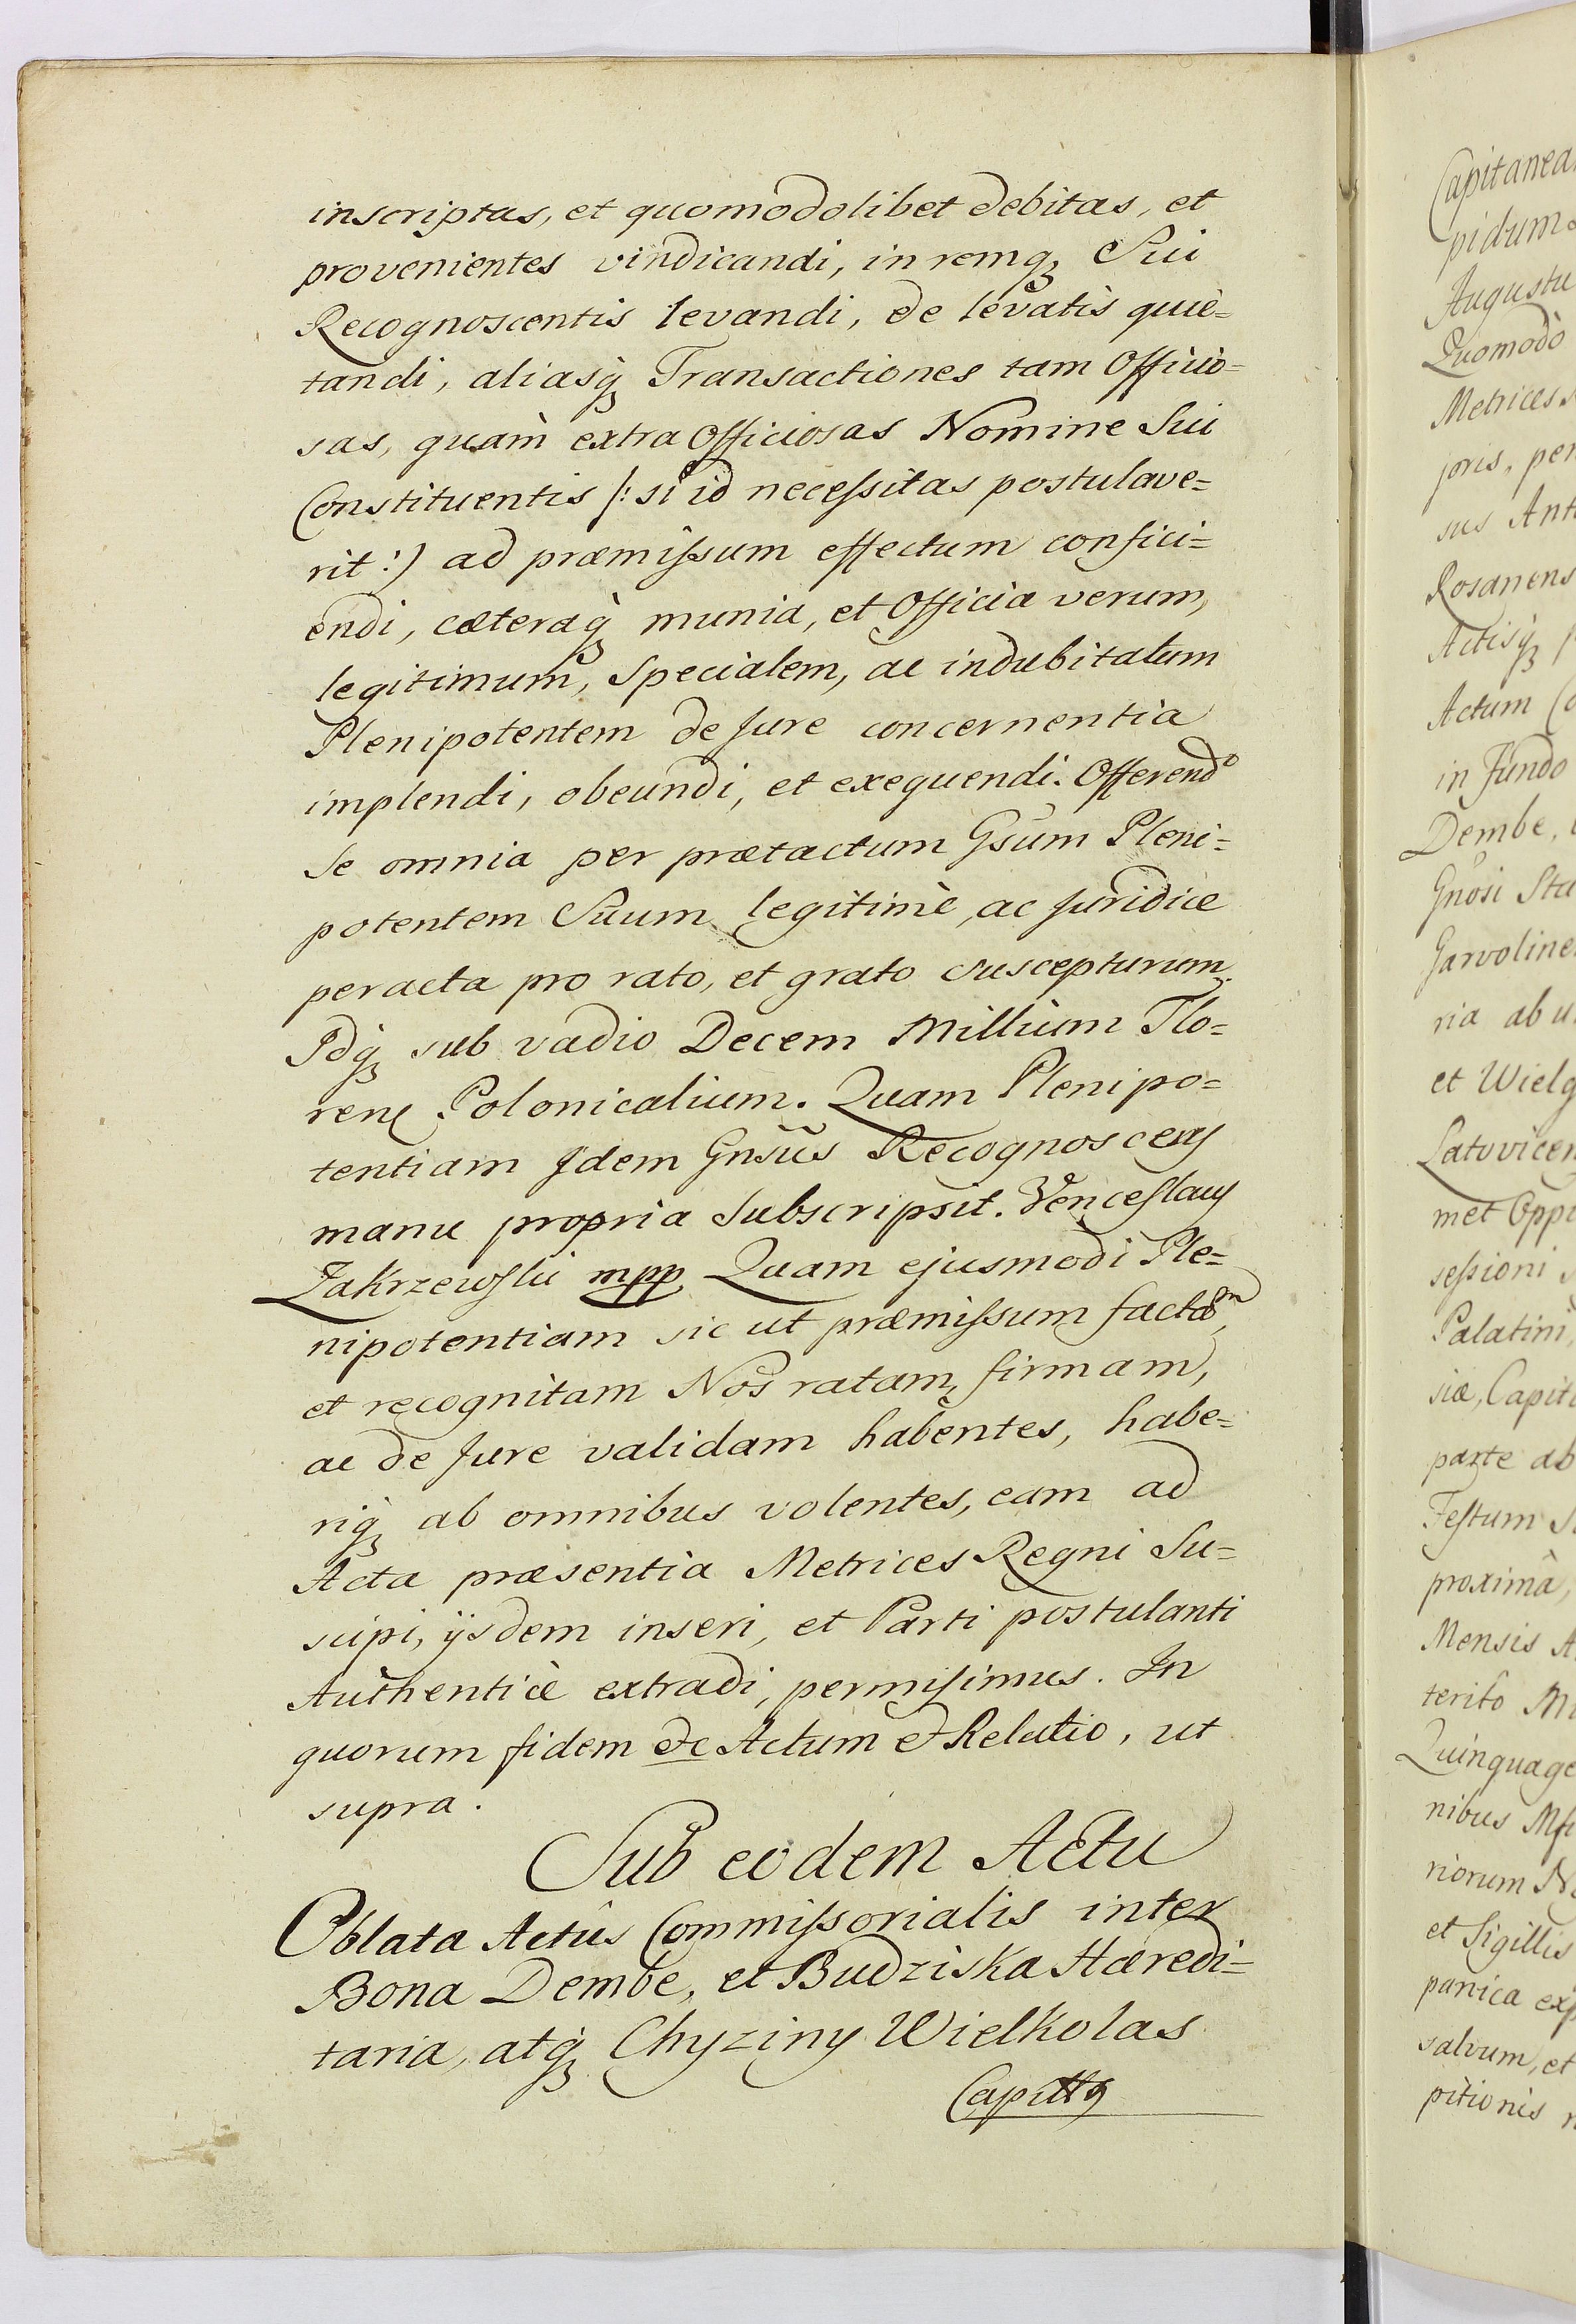 inscriptas, et quomodolibet debitas, et
provenientes vindicandi, in remq₃ Sui
Recognoscentis levandi, de levatis quie=
tandi, aliasq₃ Transactiones tam Officio=
sas, quàm extra Officiosas Nomine Sui
Constituentis /: si id necessitas postulave=
rit :) ad præmissum effectum confici=
endi, cæteraq₃ munia, et Officia verum,
legitimum, Specialem, ac indubitatum
Plenipotentem de Jure concernentia
implendi, obeundi, et exequendi. Offerendo
Se omnia per prætactum Gsum Pleni=
potentem Suum legitimè, ac Juridice
peracta pro rato, et grato Suscepturum.
Idq₃ sub vadio Decem Millium Flo=
reny Polonicalium. Quam Plenipo=
tentiam Idem Gnsus Recognoscens
manu propria Subscripsit. Venceslaus
Zakrzewski mpp Quam ejusmodi Ple=
nipotentiam sic ut præmissum factam,
et recognitam Nos ratam, firmam,
ac de Jure validam habentes, habe=
riq₃ ab omnibus volentes, eam ad
Acta præsentia Metrices Regni Su=
scipi, ijsdem inseri, et Parti postulanti
Authenticè extradi, permisimus. In
quorum fidem etc Actum et Relatio, ut
supra.
Sub eodem Actu
Oblata Actûs Commissorialis inter
Bona Dembe, et Budziska Hæredi=
taria, atq₃ Chyziny Wielkolas
Capit
Capitanea
pidum
Augustu
Quomodò
Metrices
joris, per
sus Ant
Rosanens
Actisq₃
Actum
in Fundo
Dembe,
Gnosi Sta
Garvoline
ria ab u
et Wielg
Latovicen
met Oppi
sessioni
Palatini,
siæ, Capit
parte ab
Festum
proximâ,
Mensis A
terito Mi
Quinquage
nibus
riorum
et Sigillis
panica exp
salvum, et
pitionis